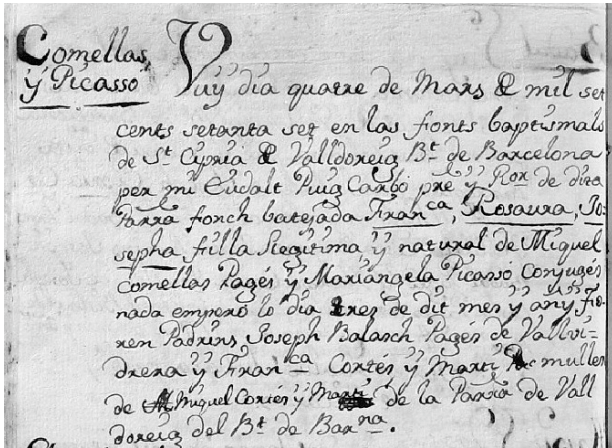 Comellas,
y Picasso
Vuÿ dia quatre de Mars de mil set
cents setanta set en las fonts baptismals
de St. Cypria de Valldoreig Bt. de Barcelona
per mi Eudalt Puig Carbó pre. y Ror. de dita
Parra. fonch batejada Franca., Rosaura, Jo=
sepha filla llegitima, ÿ natural de Miquel
Comellas Pagés ÿ Mariangela Picasso Conjugés
nada empero lo dia tres de dit mes ÿ anÿ fo=
ren Padrins Joseph Balasch Pagés de Vallvi=
drera ÿ Franca. Cortés ÿ Martí muller
de Miquel Cortés ÿ Martí de la Parra. de Vall
doreig del Bt. de Barna.